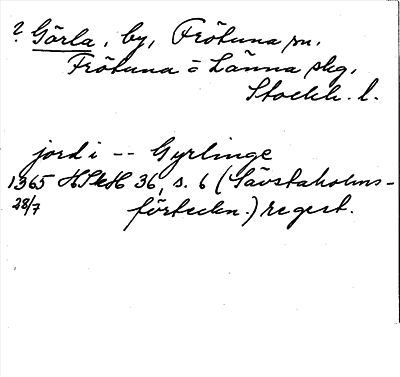 ? Görla, by, Frötuna sn.
Frötuna o Länna skg,
Stockh. l.
jord i -- Gyrlinge
1365 HSkH 36, s. 6 (Sävstaholms-
28/7 förteckn.) regest.